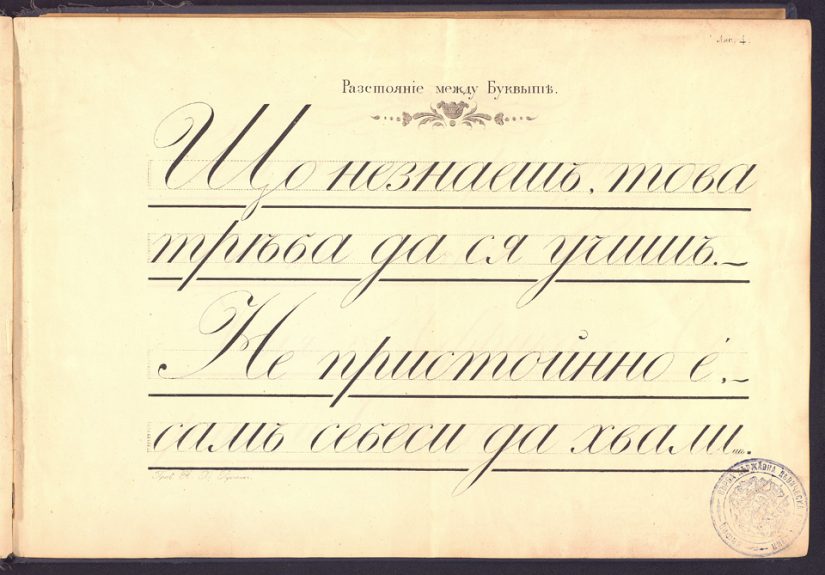 Лис. 4.
Разстояніе между Буквытѣ.
Що незнаешъ, това
трѣба да ся учишъ.–
Не пристойнно é,–
самъ себеси да хвалишъ.